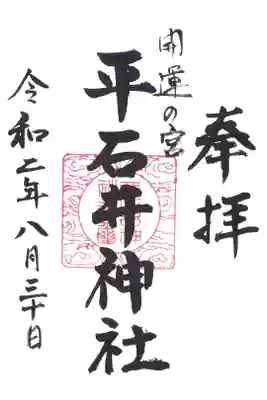 奉拝
開運の宮
平石井神社
令和二年八月三十日